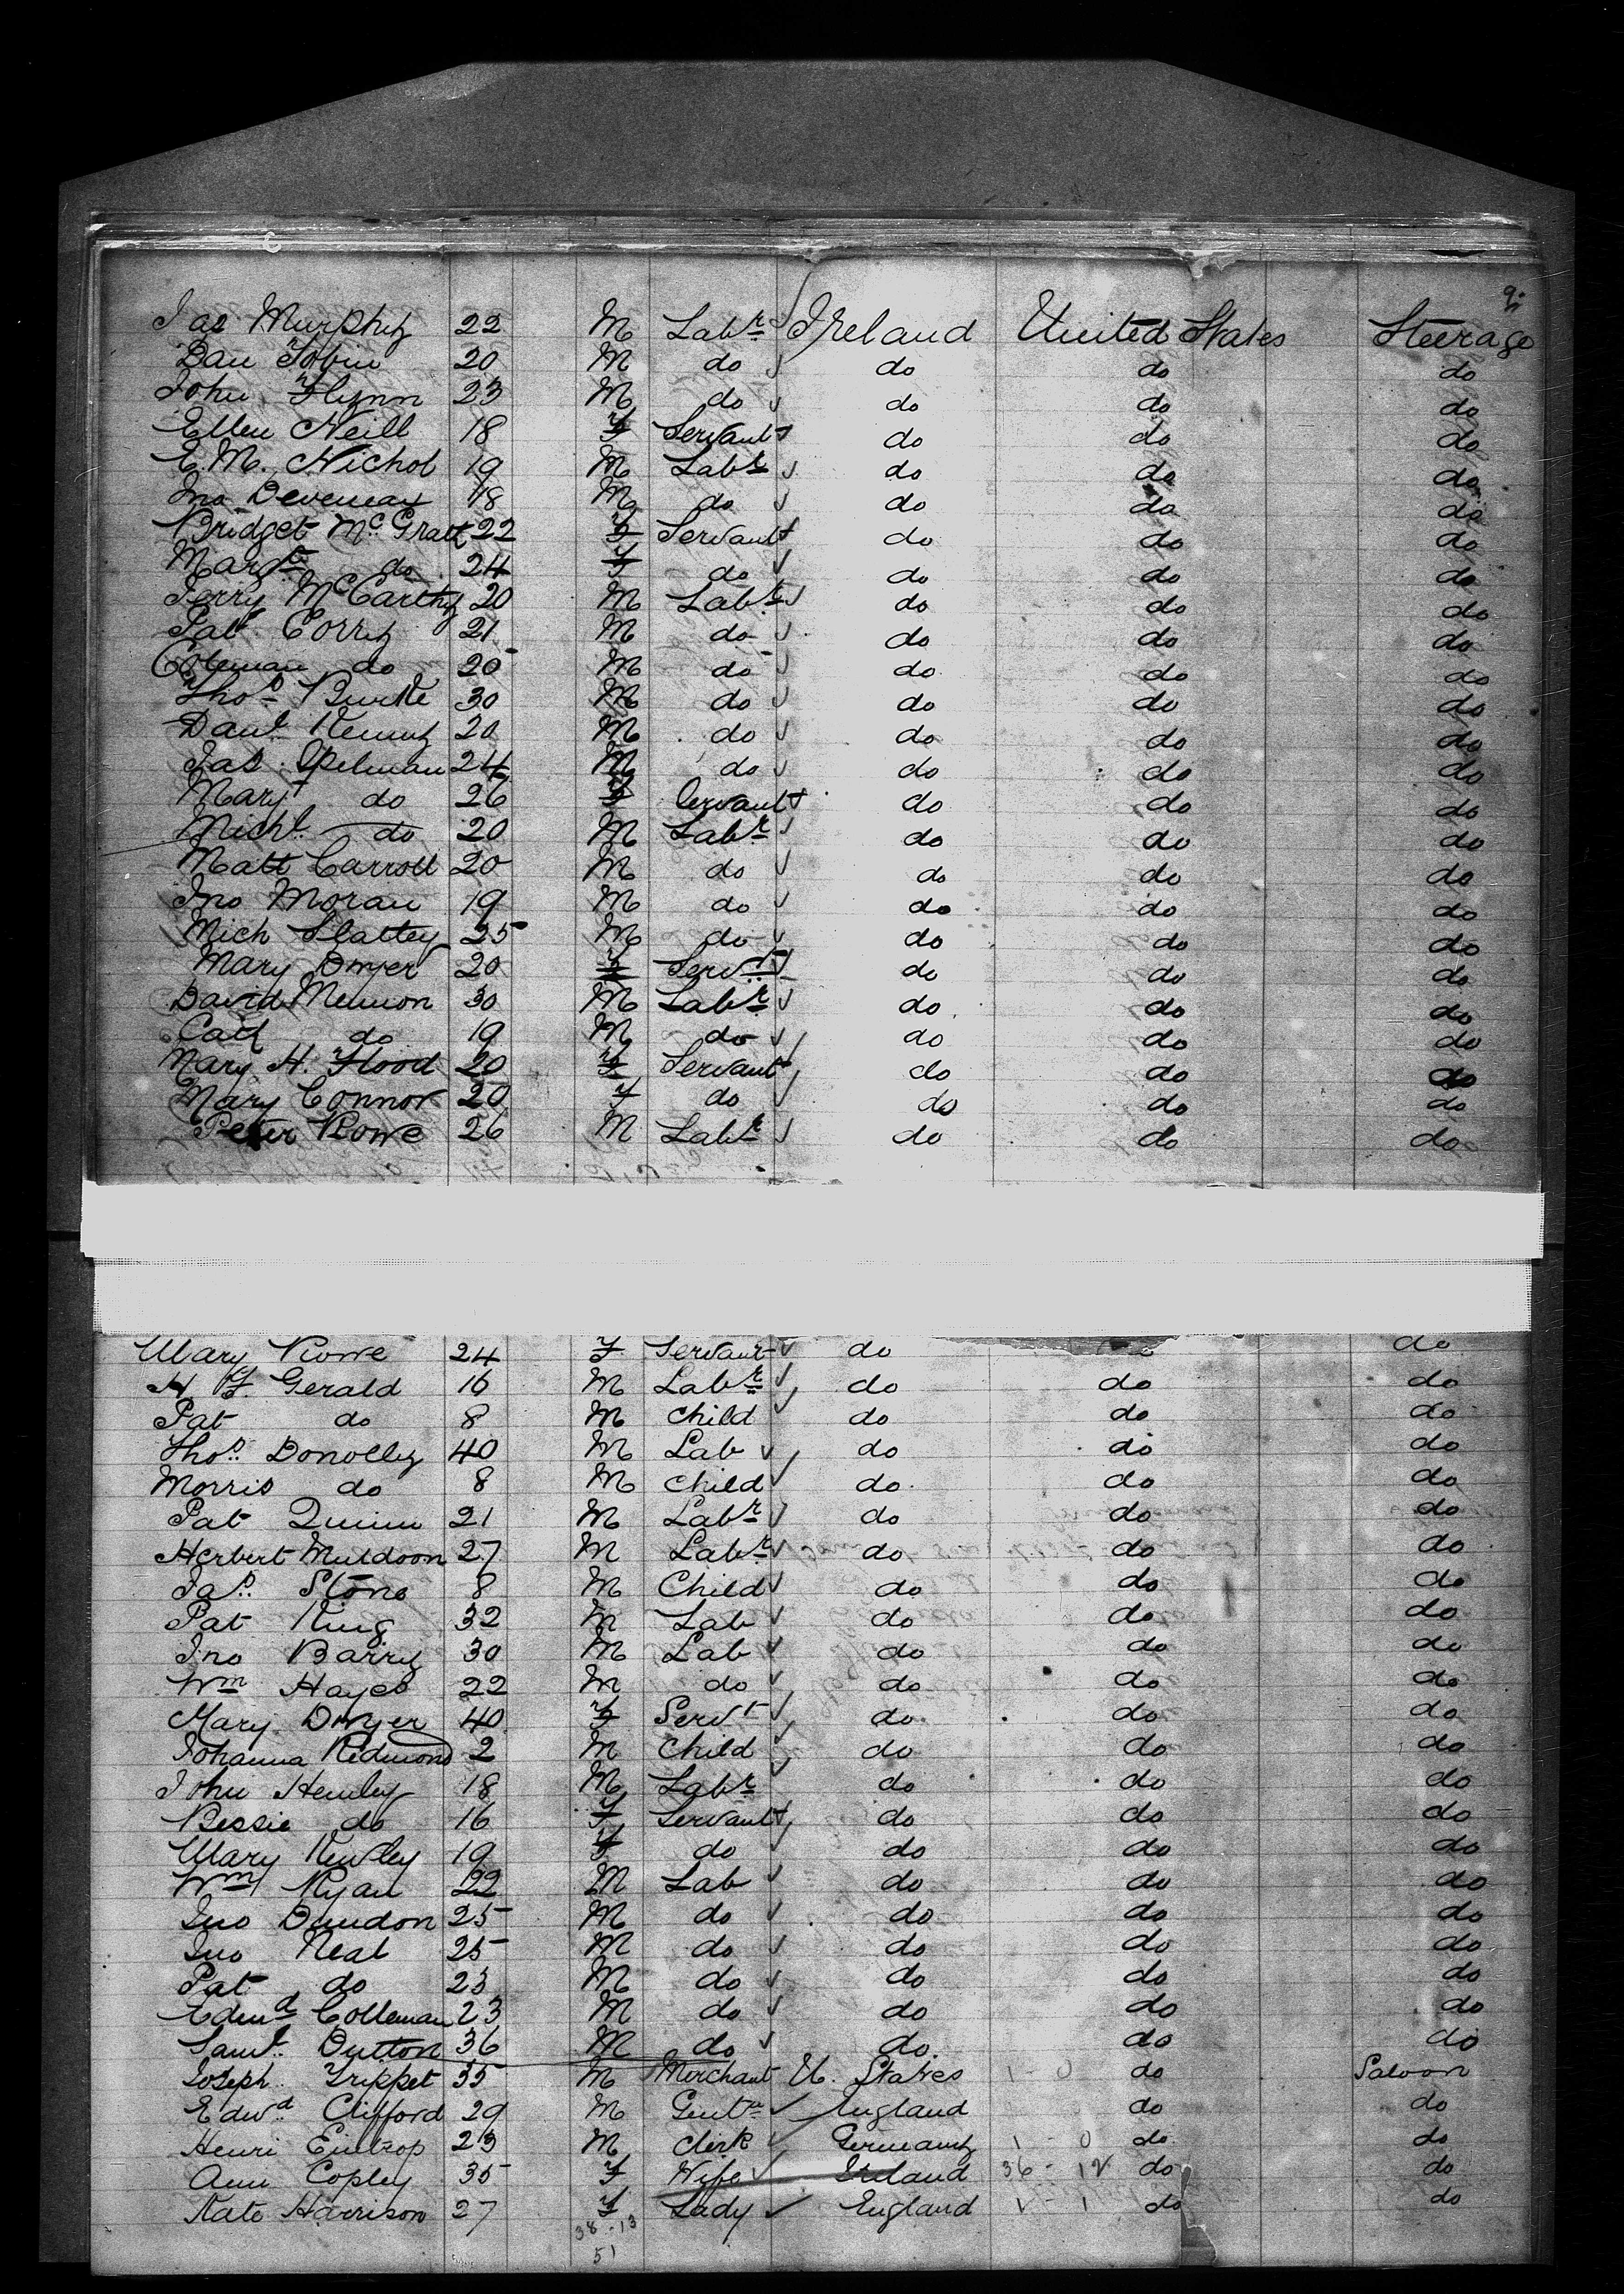 9.
Jas Murphy 22 M Labr Ireland United States Steerage
Dan Tobin 20 M do do do do
John Flynn 23 M do do do do
Ellen Neill 18 F Servant do do do
E. M. Nichol 19 M Labr do do do
Jno Devenay 18 M do do do do
Bridget McGrath 22 F Servant do do do
Margt do 24 F do do do do
Jerry McCarthy 20 M Labr do do do
Pat Corry 21 M do do do do
Coleman do 20 M do do do do
Thos Burke 30 M do do do do
Danl Kenny 20 M do do do do
Jas Spelman 24 M do do do do
Mary do 26 F Servant do do do
Michl do 20 M Labr do do do
Matt Carroll 20 M do do do do
Jno Moran 19 M do do do do
Mich Slattey 25 M do do do do
Mary Dwyer 20 F Servt do do do
David Mennon 30 M Labr do do do
Cath do 19 M do do do do
Mary H. Flood 20 F Servant do do do
Mary Connor 20 F do do do do
Peter Rowe 26 M Labr do do do
Mary Rowe 24 F Servant do do do
H F Gerald 16 M Labr do do do
Pat do 8 M Child do do do
Thos Donolly 40 M Lab do do do
Morris do 8 M Child do do do
Pat Quinn 21 M Labr do do do
Herbert Muldoon 27 M Labr do do do
Jas Stone 8 M Child do do do
Pat King 32 M Lab do do do
Jno Barry 30 M Lab do do do
Wm Hayes 22 M do do do do
Mary Dwyer 40 F Servt do do do
Johanna Redmond 2 M Child do do do
John Henley 18 M Labr do do do
Bessie do 16 F Servant do do do
Mary Newley 19 F do do do do
Wm Ryan 22 M Lab do do do
Jno Dundon 25 M do do do do
Jno Neal 25 M do do do do
Pat do 23 M do do do do
Edmd Colleman 23 M do do do do
Saml Dutton 36 M do do do do
Joseph Trippet 35 M Merchant U. States 1 - 0 do Saloon
Edwd Clifford 29 M Gentn England do do
Henri Eintrop 23 M Clerk Germany 1 - 0 do do
Ann Copley 35 F Wife Ireland 36 - 12 do do
Kate Harrison 27 F Lady England 1 - 1 do do
38 - 13
51